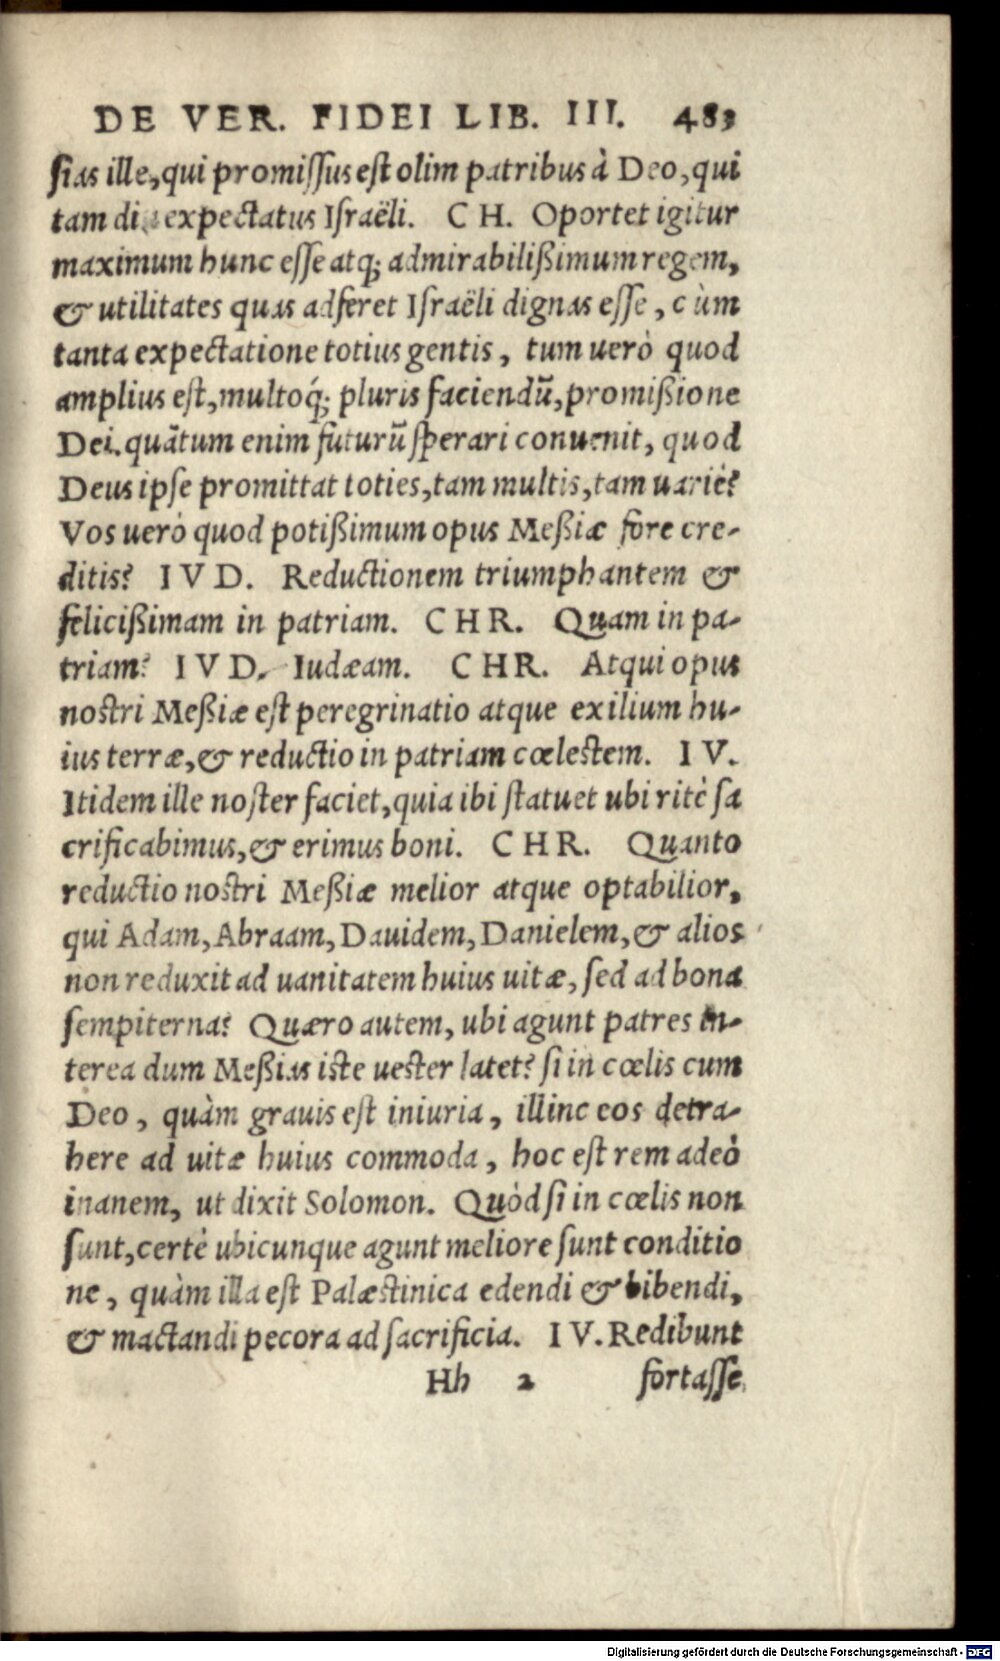 DE VER. FIDEI LIB. III. 483
ſias ille, qui promiſſus eſt olim patribus à Deo, qui
tam diu expectatus Iſraëli. CH. Oportet igitur
maximum hunc eſſe atq; admirabilißimum regem,
& utilitates quas adferet Iſraëli dignas eſſe, cùm
tanta expectatione totius gentis, tum uerò quod
amplius eſt, multoq́; pluris faciendũ, promißione
Dei. quãtum enim futurũ ſperari conuenit, quod
Deus ipſe promittat toties, tam multis, tam uariè?
Vos uerò quod potißimum opus Meßiæ fore cre-
ditis? IVD. Reductionem triumphantem &
felicißimam in patriam. CHR. Quam in pa-
triam? IVD. Iudæam. CHR. Atqui opus
noſtri Meßiæ eſt peregrinatio atque exilium hu-
ius terræ, & reductio in patriam cœleſtem. IV.
Itidem ille noſter faciet, quia ibi ſtatuet ubi ritè ſa
crificabimus, & erimus boni. CHR. Quanto
reductio noſtri Meßiæ melior atque optabilior,
qui Adam, Abraam, Dauidem, Danielem, & alios
non reduxit ad uanitatem huius uitæ, ſed ad bona
ſempiterna? Quæro autem, ubi agunt patres in-
terea dum Meßias iſte ueſter latet? ſi in cœlis cum
Deo, quàm grauis eſt iniuria, illinc eos detra-
here ad uitæ huius commoda, hoc eſt rem adeò
inanem, ut dixit Solomon. Quòd ſi in cœlis non
ſunt, certè ubicunque agunt meliore ſunt conditio
ne, quàm illa eſt Palæſtinica edendi & bibendi,
& mactandi pecora ad ſacrificia. IV. Redibunt
Hh 2 fortaſſe
Digitalisierung gefördert durch die Deutsche Forschungsgemeinschaft - DFG